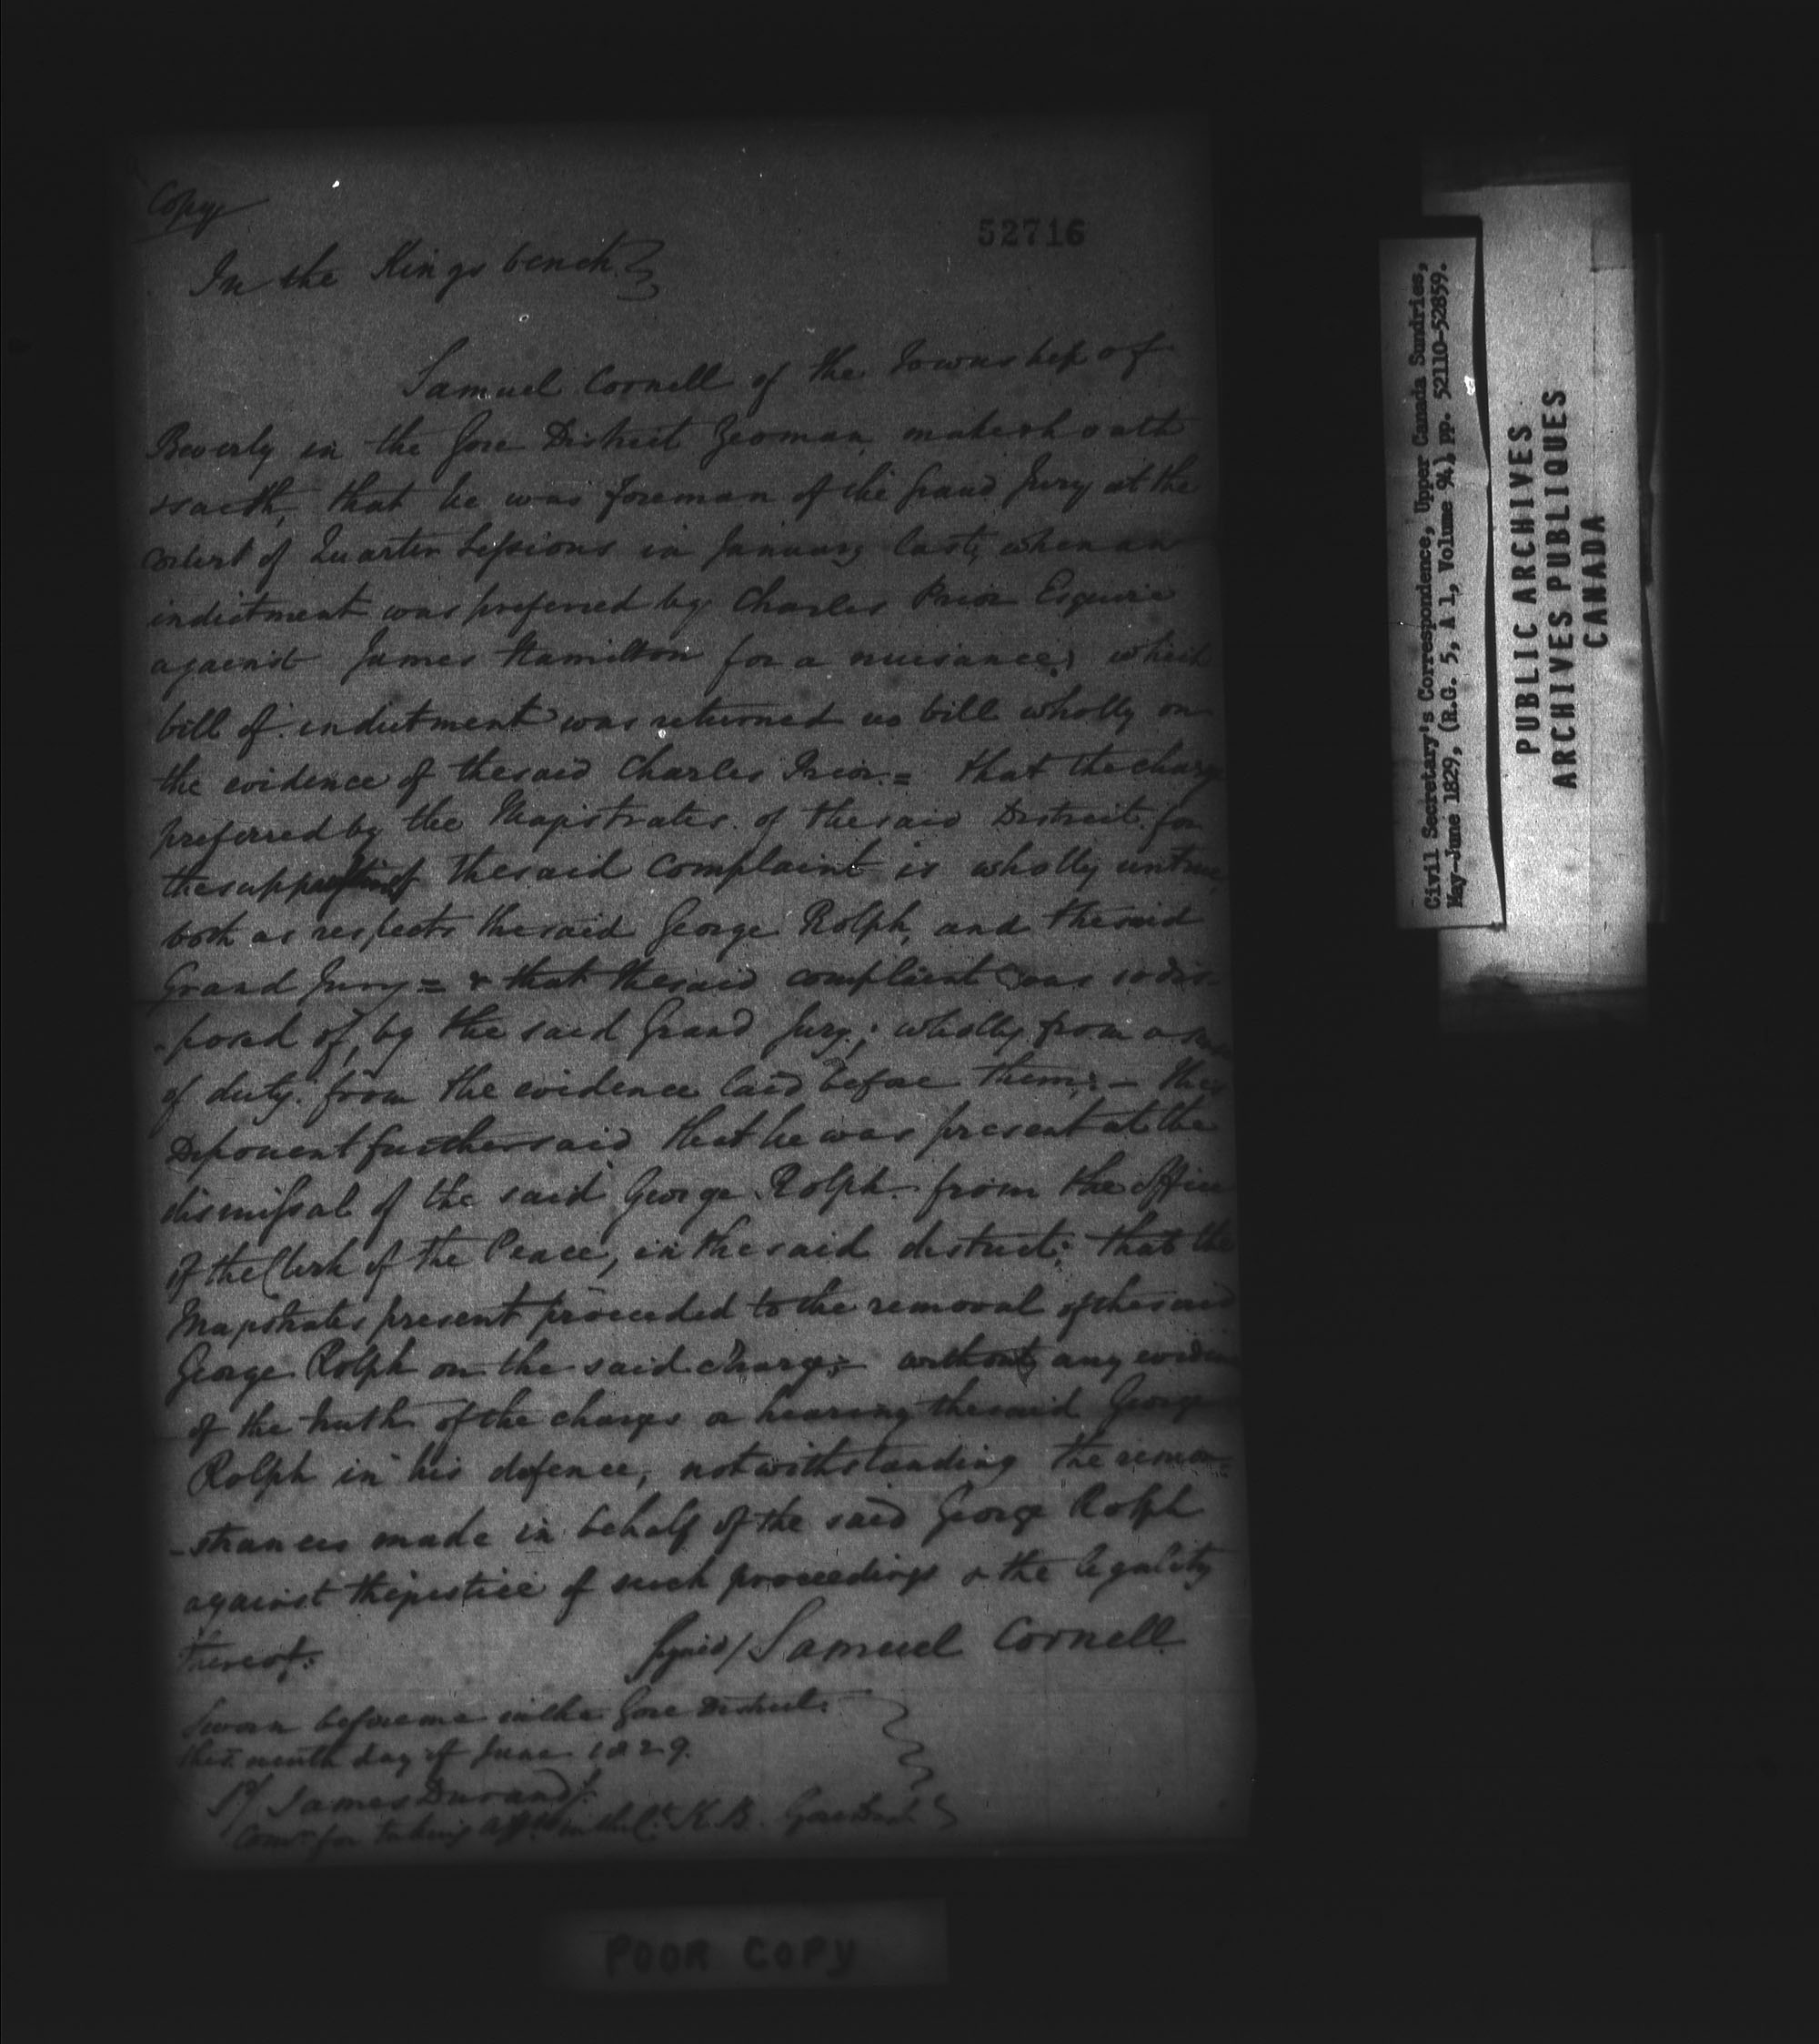 Copy
52716
In the Kings bench
Samuel Cornell of the Township of
Beverly in the Gore District Yeoman, maketh oath
& saith, that he was foreman of the Grand Jury at the
court of Quarter Sessions in January last, when an
indictment was preferred by Charles Prior Esquire
against James Hamilton for a nuisance; which
bill of indictment was returned no bill wholly on
the evidence of the said Charles Prior. = that the charge
preferred by the Magistrates of the said District for
the the said complaint is wholly untrue,
both as respects the said George Rolph, and the said
Grand Jury = & that the said complaint was so dis-
-posed of, by the said Grand Jury; wholly from a sense
of duty from the evidence laid before them; - this
Deponent further said that he was present at the
dismissal of the said George Rolph from the office
of the Clerk of the Peace, in the said district; that the
Magistrates present proceeded to the removal of the said
George Rolph on the said charge; without any eviden
of the truth of the charges or hearing the said George
Rolph in his defence, notwithstanding the remon-
-strances made in behalf of the said George Rolph
against the justice of such proceedings & the legality
thereof.
Signed/ Samuel Cornell
Sworn before me in the Gore District
this ninth day of June 1829.
James Durand
Comr. for taking affts in the Ct. K.B. Gore Dist.
POOR COPY
Civil Secretary's Correspondence, Upper Canada Sundries,
May-June 1829, (R.G. 5, A 1, Volume 94) pp. 52110-52859.
PUBLIC ARCHIVES
ARCHIVES PUBLIQUES
CANADA